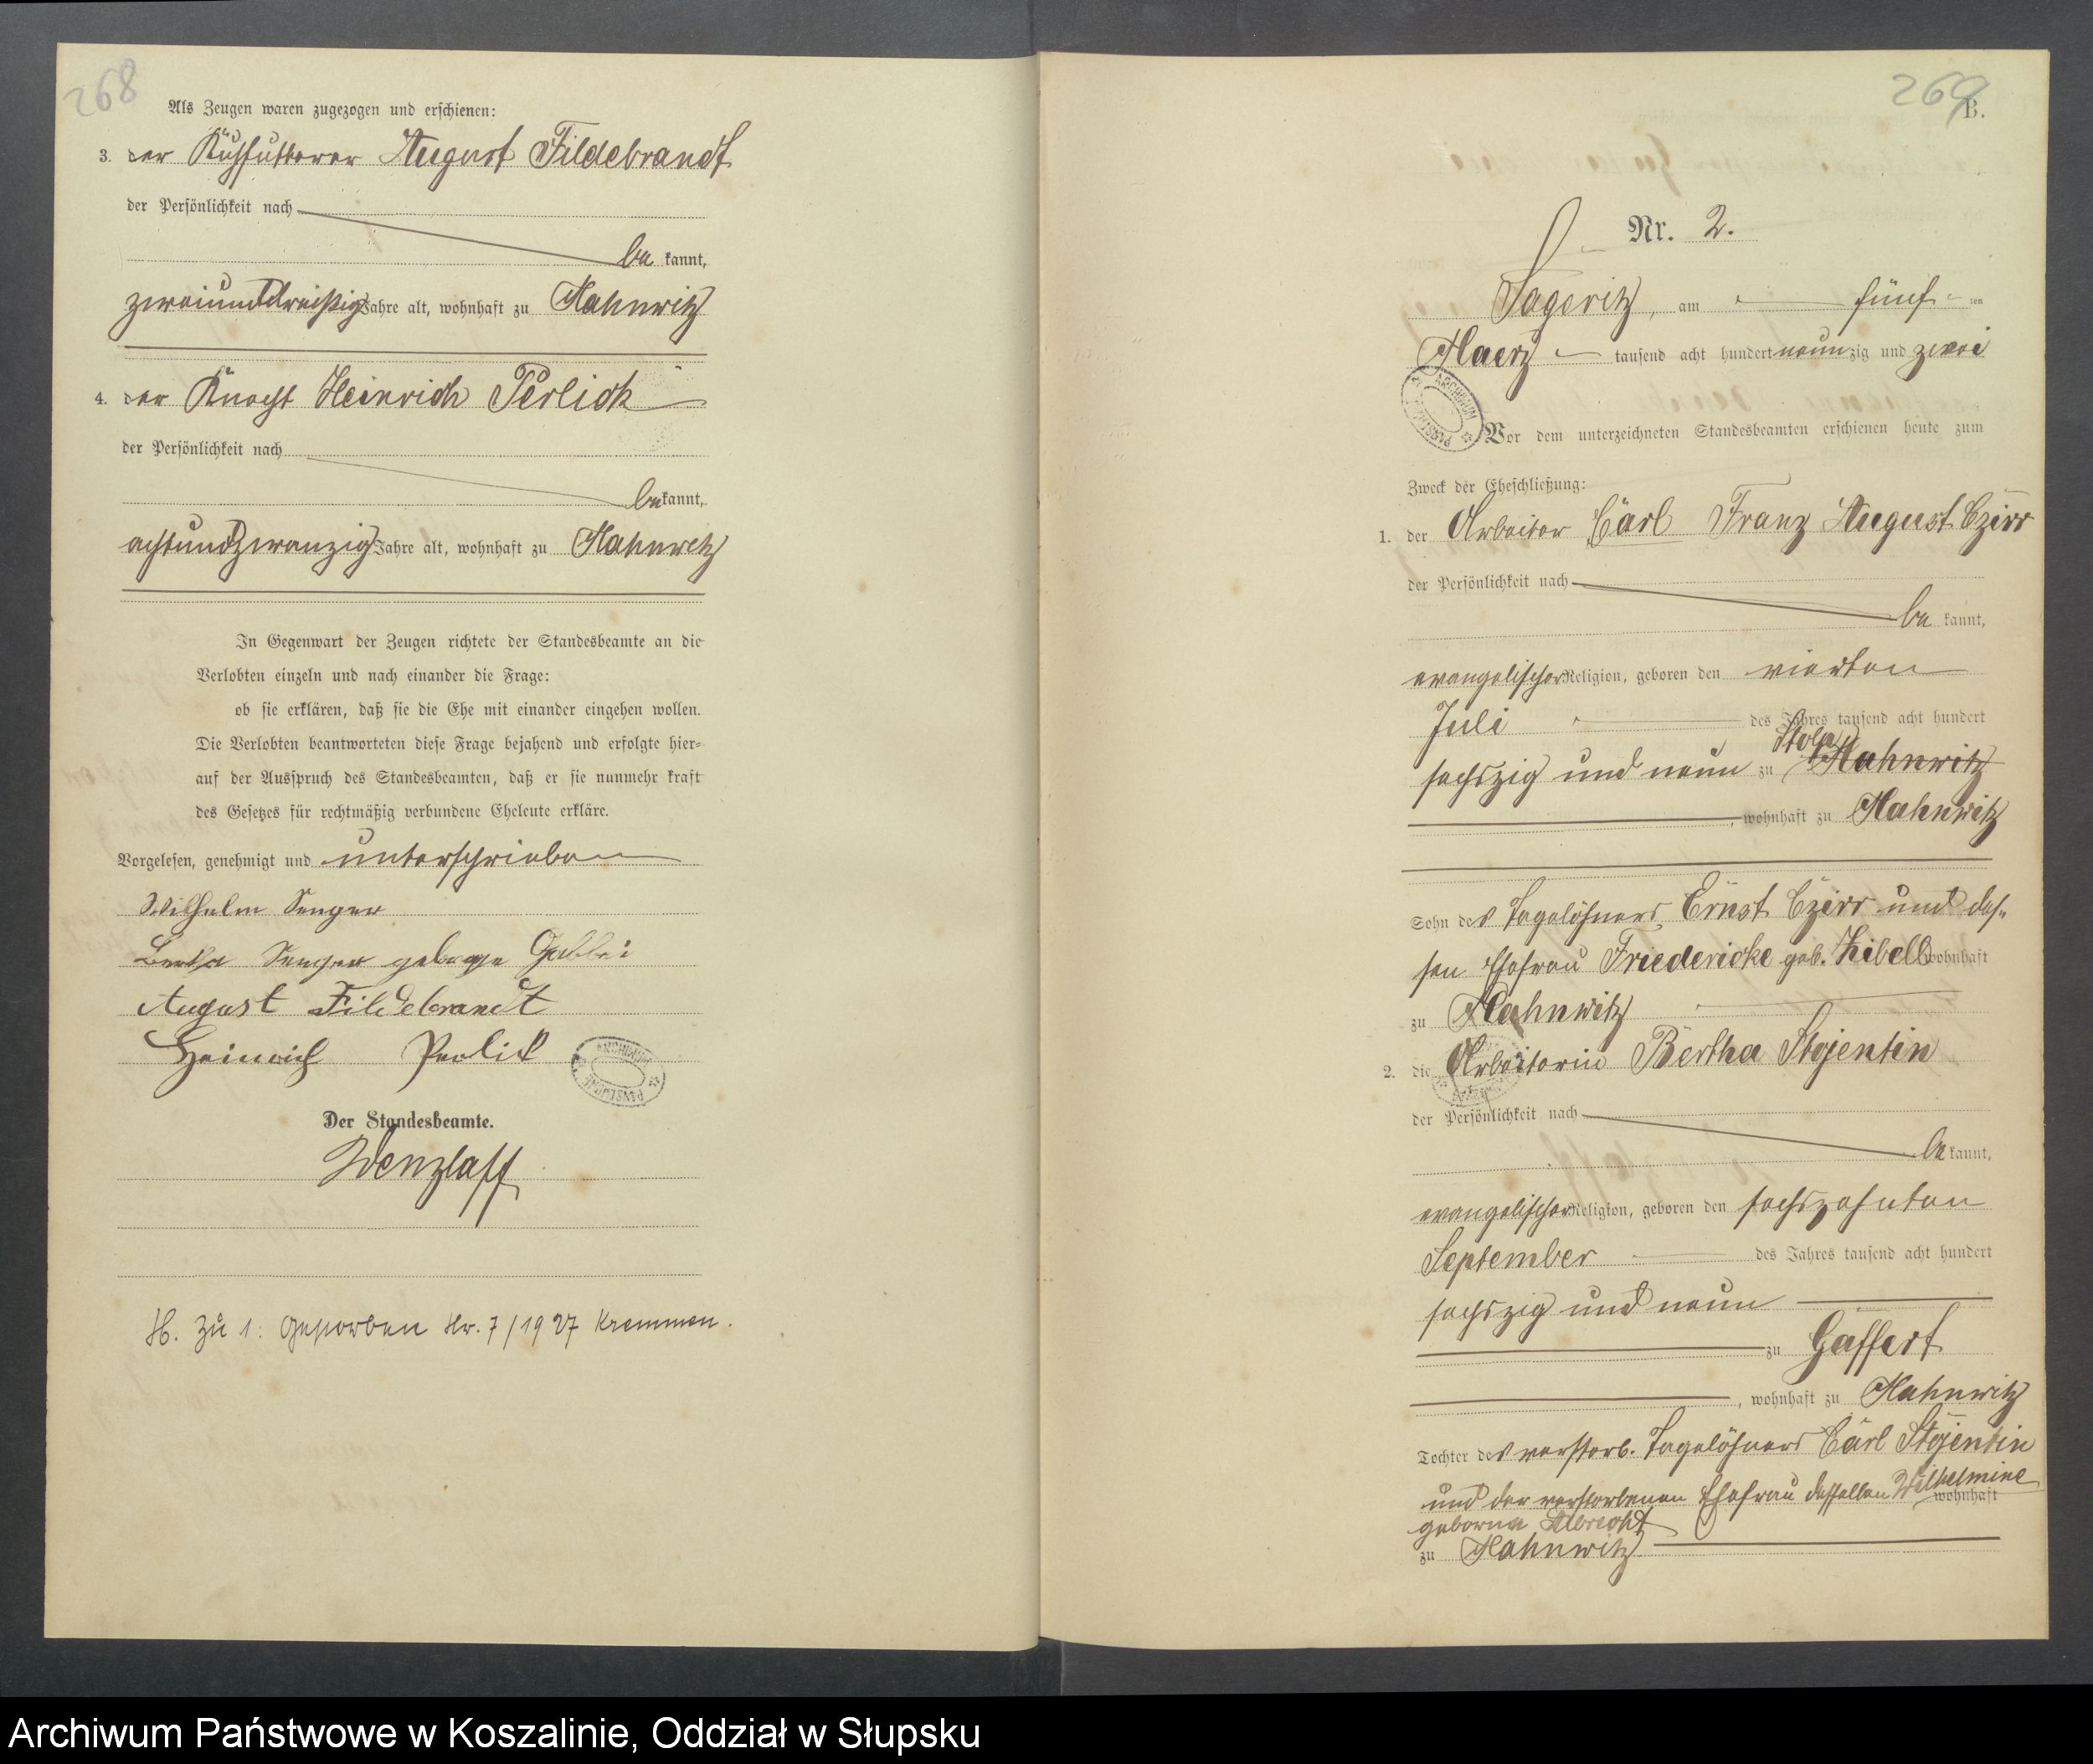 268
Als Zeugen waren zugezogen und erschienen:
3. der Kuhfutterer August Fildebrandt
der Persönlichkeit nach
be kannt,
zweiunddreißig Jahre alt, wohnhaft zu Mahnwitz
4. der Knecht Heinrich Perlick
der Persönlichkeit nach
be kannt,
achtundzwanzig Jahre alt, wohnhaft zu Mahnwitz
In Gegenwart der Zeugen richtete der Standesbeamte an die
Verlobten einzeln und nach einander die Frage:
ob sie erklären, daß sie die Ehe mit einander eingehen wollen.
Die Verlobten beantworteten diese Frage bejahend und erfolgte hier-
auf der Ausspruch des Standesbeamten, daß er sie nunmehr kraft
des Gesetzes für rechtmäßig verbundene Eheleute erkläre.
Vorgelesen, genehmigt und unterschrieben
Wilhelm Senger
Senger
August Fildebrandt
Heinrich Perlick
ARCHIWUM PAŃSTWOWE
Der Standesbeamte.
Wenzlaff
H. zu 1: Gestorben Nr. 7/1927 Kremmen.
269
B.
Nr. 2.
Sageritz, am fünf ten
Maerz tausend acht hundert neunzig und zwei
ARCHIWUM PAŃSTWOWE
Vor dem unterzeichneten Standesbeamten erschienen heute zum
Zweck der Eheschließung:
1. der Arbeiter Carl Franz August Czirr
der Persönlichkeit nach
be kannt,
evangelischer Religion, geboren den vierten
Juli des Jahres tausend acht hundert
Stolp
sechszig und neun zu Mahnwitz
, wohnhaft zu Mahnwitz
Sohn des Tagelöhners Ernst Czirr und des-
sen Ehefrau Friedericke geb. Zibell wohnhaft
zu Mahnwitz
2. die Arbeiterin Bertha Stojentin
der Persönlichkeit nach
be kannt,
evangelischer Religion, geboren den sechszehnten
September des Jahres tausend acht hundert
sechszig und neun
zu Gaffert
, wohnhaft zu Mahnwitz
Tochter des verstorb. Tagelöhners Carl Stojentin
und der verstorbenen Ehefrau desselben Wilhelmine
wohnhaft
geborne Albrecht
zu Mahnwitz
Archiwum Państwowe w Koszalinie, Oddział w Słupsku